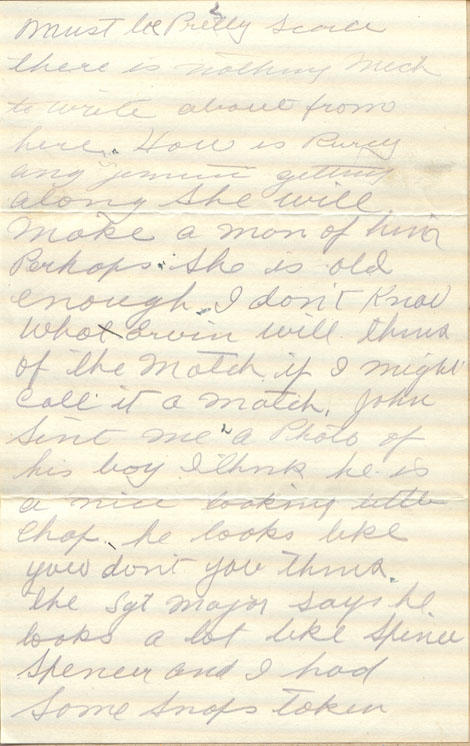 Must be Pretty Scarce
there is nothing Mech
to write about from
here. How is Percy
and Jennie getting
along She will
Make a man of him
Perhaps. She is old
enough. I don't Know
What Ervin will think
of the Match if I might
Call it a Match. John
Sint me a Photo of
his boy I think he is
a nice looking little
Chap. he looks like
you don't you think.
the Sgt Major Says he
looks a lot like Spence
Spencer and I had
Some Snaps taken